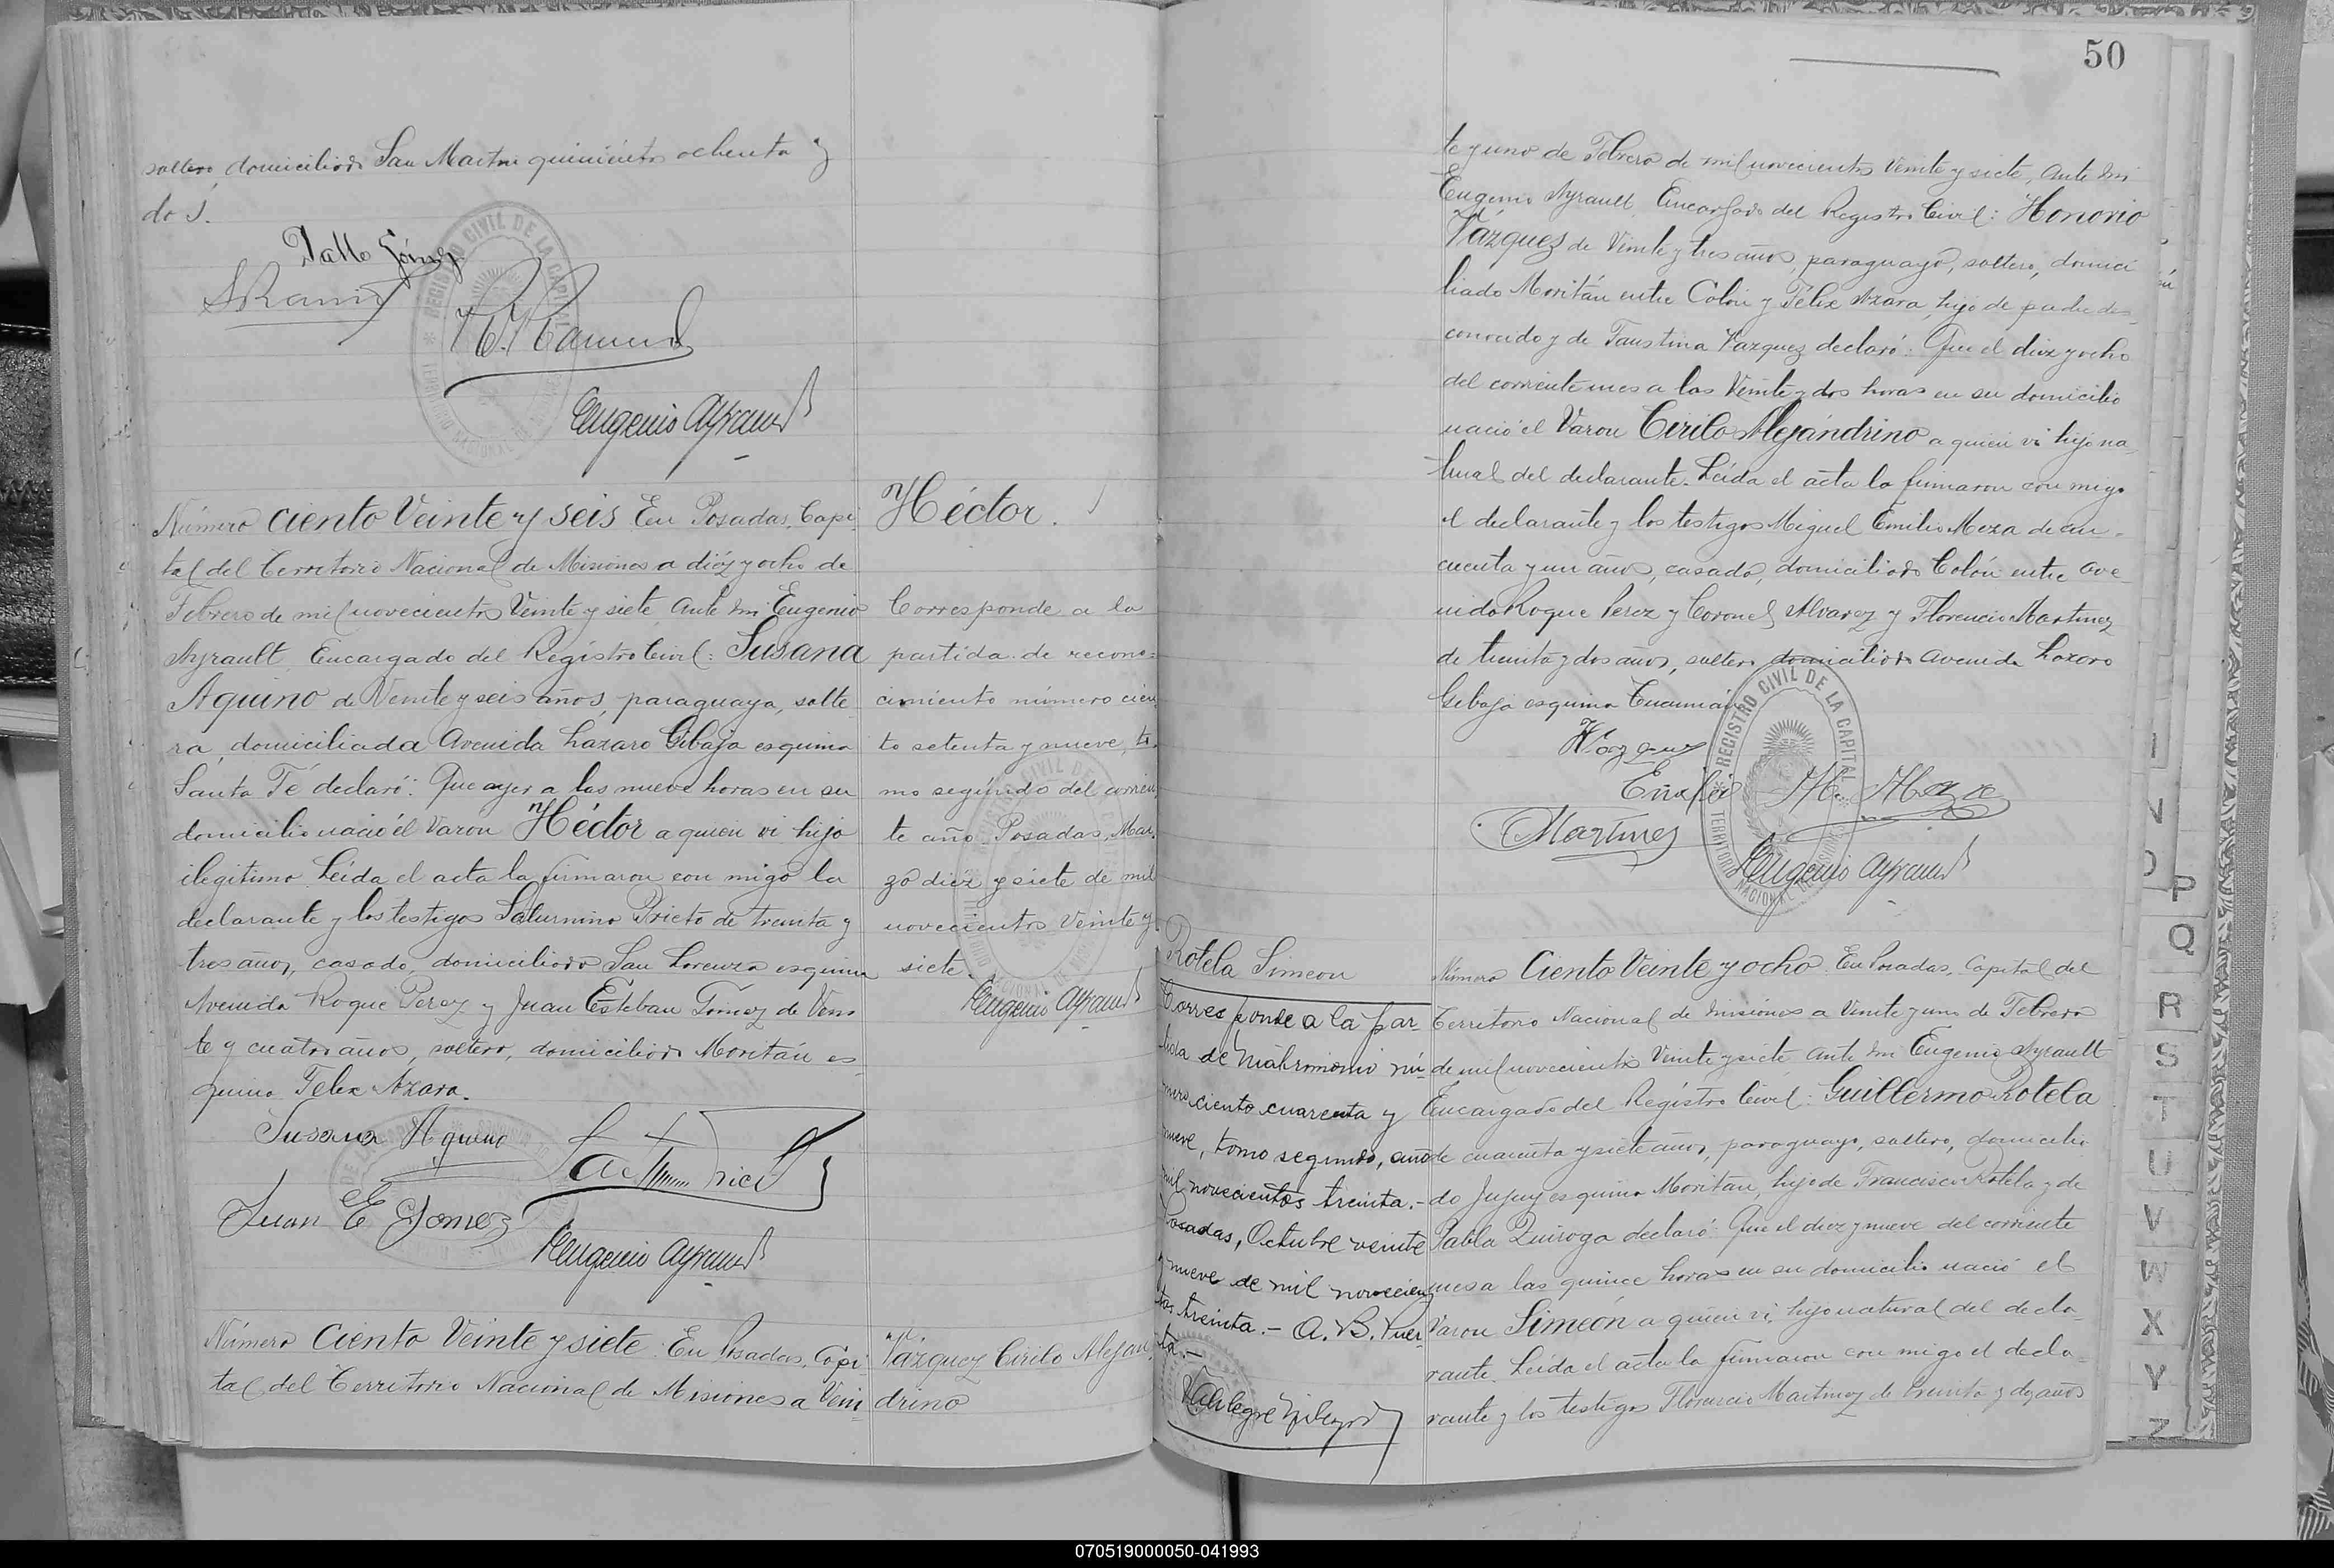 soltero, domiciliado San Martin quinientos ochenta y
dos.
Pablo Gómez
Eugenio Ayrault
Número ciento Veinte y seis En Posadas, Capi
tal del Territorio Nacional de Misiones a diez y ocho de
Febrero de mil novecientos Veinte y siete, ante mi Eugenio
Ayrault, Encargado del Registro Civil: Susana
Aquino de Veinte y seis años, paraguaya, solte
ra, domiciliada Avenida Lazaro Gibaja esquina
Santa Fé declaró: Que ayer a las nueve horas en su
domicilio nació el Varon Héctor a quien vi hijo
ilegitimo Leida el acta la firmaron con migo la
declarante y los testigos Saturnino Prieto de treinta y
tres años, casado, domiciliado San Lorenzo esquina
Avenida Roque Perez y Juan Esteban Gómez de Vein
te y cuatro años, soltero, domiciliado Moritán es
quina Felix Azara.
Susana Aquino
Juan E Gomez
Eugenio Ayrault
Héctor.
Corresponde a la
partida de recono=
cimiento número cien
to setenta y nueve, to
mo segundo del corrien
te año Posadas, Mar
zo diez y siete de mil
novecientos Veinte y
siete.
Eugenio Ayrault
Número Ciento Veinte y siete En Posadas, Capi
tal del Territorio Nacional de Misiones a Vein
Vázquez Cirilo Alejan
drino
50
te y uno de Febrero de mil novecientos Veinte y siete, ante mi
Eugenio Ayrault, Encargado del Registro Civil: Honorio
Vázquez de Veinte y tres años, paraguayo, soltero, domici
liado Moritán entre Colón y Felix Azara, hijo de padre des
conocido y de Faustina Vazquez declaró: Que el diez y ocho
del corriente mes a las Veinte y dos horas en su domicilio
nació el Varon Cirilo Alejándrino a quien vi hijo na
tural del declarante. Leída el acta la firmaron con migo
el declarante y los testigos Miguel Emilio Meza de cin
cuenta y un años, casado, domiciliado Colón entre Ave
nida Roque Perez y Coronel Alvarez y Florencio Martinez
de treinta y dos años, soltero domiciliado Avenida Lazaro
Gibaja esquina Tucumán
Vázquez
Martinez
Eugenio Ayrault
REGISTRO CIVIL DE LA CAPITAL
TERRITORIO NACIONAL DE MISIONES
Rotela Simeon
Corresponde a la par-
tida de matrimonio nú-
mero ciento cuarenta y
nueve, tomo segundo, año
mil novecientos treinta.-
Posadas, Octubre veinte
y nueve de mil novecien
tos treinta.- A. B. Puer
ta.-
Número Ciento Veinte y ocho En Posadas, Capital del
Territorio Nacional de Misiones a Veinte y uno de Febrero
de mil novecientos Veinte y siete ante mi Eugenio Ayrault
Encargado del Registro Civil: Guillermo Rotela
de cuarenta y siete años, paraguayo, soltero, domicilia
do Jujuy esquina Moritán, hijo de Francisco Rotela y de
Pabla Quiroga declaró: Que el diez y nueve del corriente
mes a las quince horas en su domicilio nació el
Varon Simeón a quien vi, hijo natural del decla
rante. Leida el acta la firmaron con migo el decla
rante y los testigos Florencio Martinez de treinta y dos años
P
Q
R
S
T
U
V
W
X
Y
Z
070519000050-041993